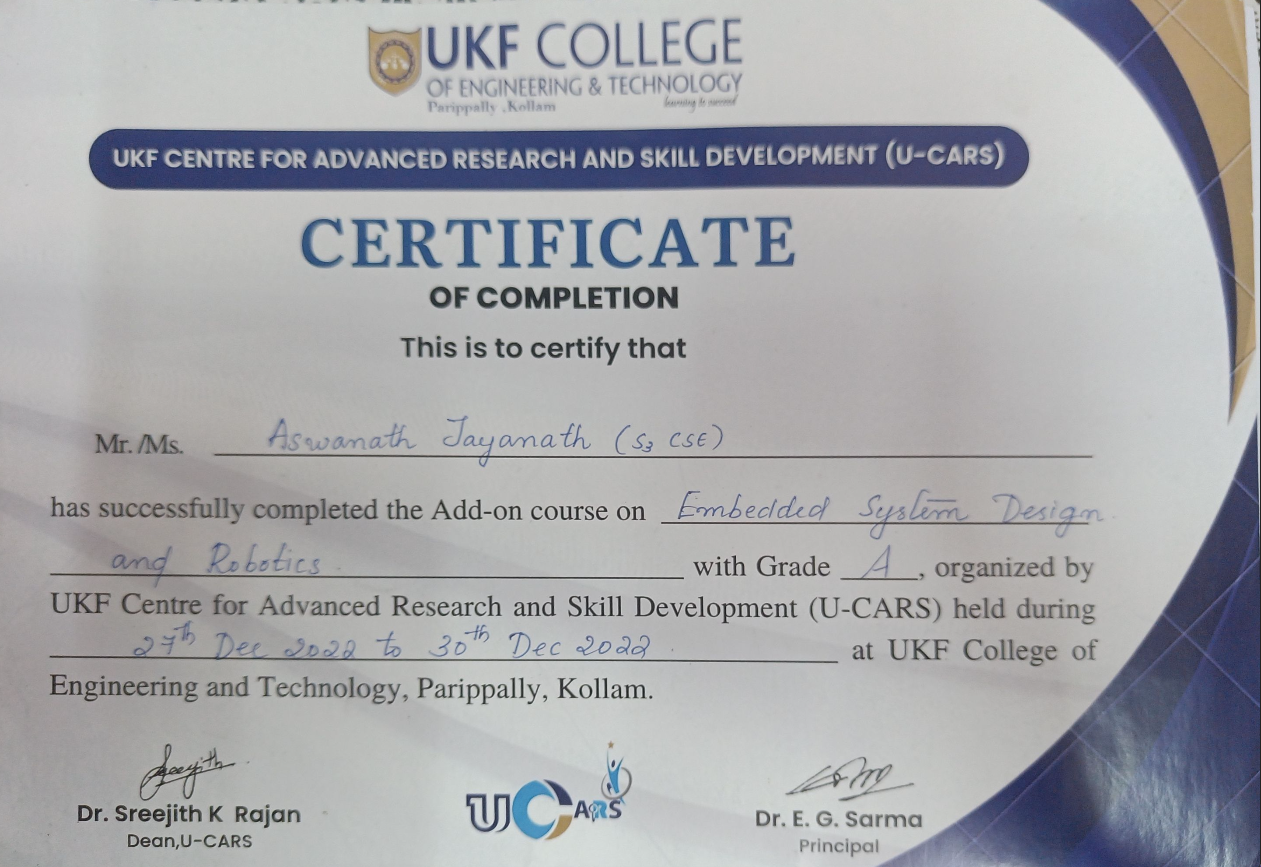 UKF COLLEGE
OF ENGINEERING & TECHNOLOGY
Parippally ,Kollam
learning to succeed
UKF CENTRE FOR ADVANCED RESEARCH AND SKILL DEVELOPMENT (U-CARS)
CERTIFICATE
OF COMPLETION
This is to certify that
Mr. /Ms. Aswanath Jayanath (S3 CSE)
has successfully completed the Add-on course on Embedded System Design
and Robotics. with Grade A, organized by
UKF Centre for Advanced Research and Skill Development (U-CARS) held during
27th Dec 2022 to 30th Dec 2022. at UKF College of
Engineering and Technology, Parippally, Kollam.
Sreejith
Dr. Sreejith K Rajan
Dean,U-CARS
UCARS
Dr. E. G. Sarma
Principal